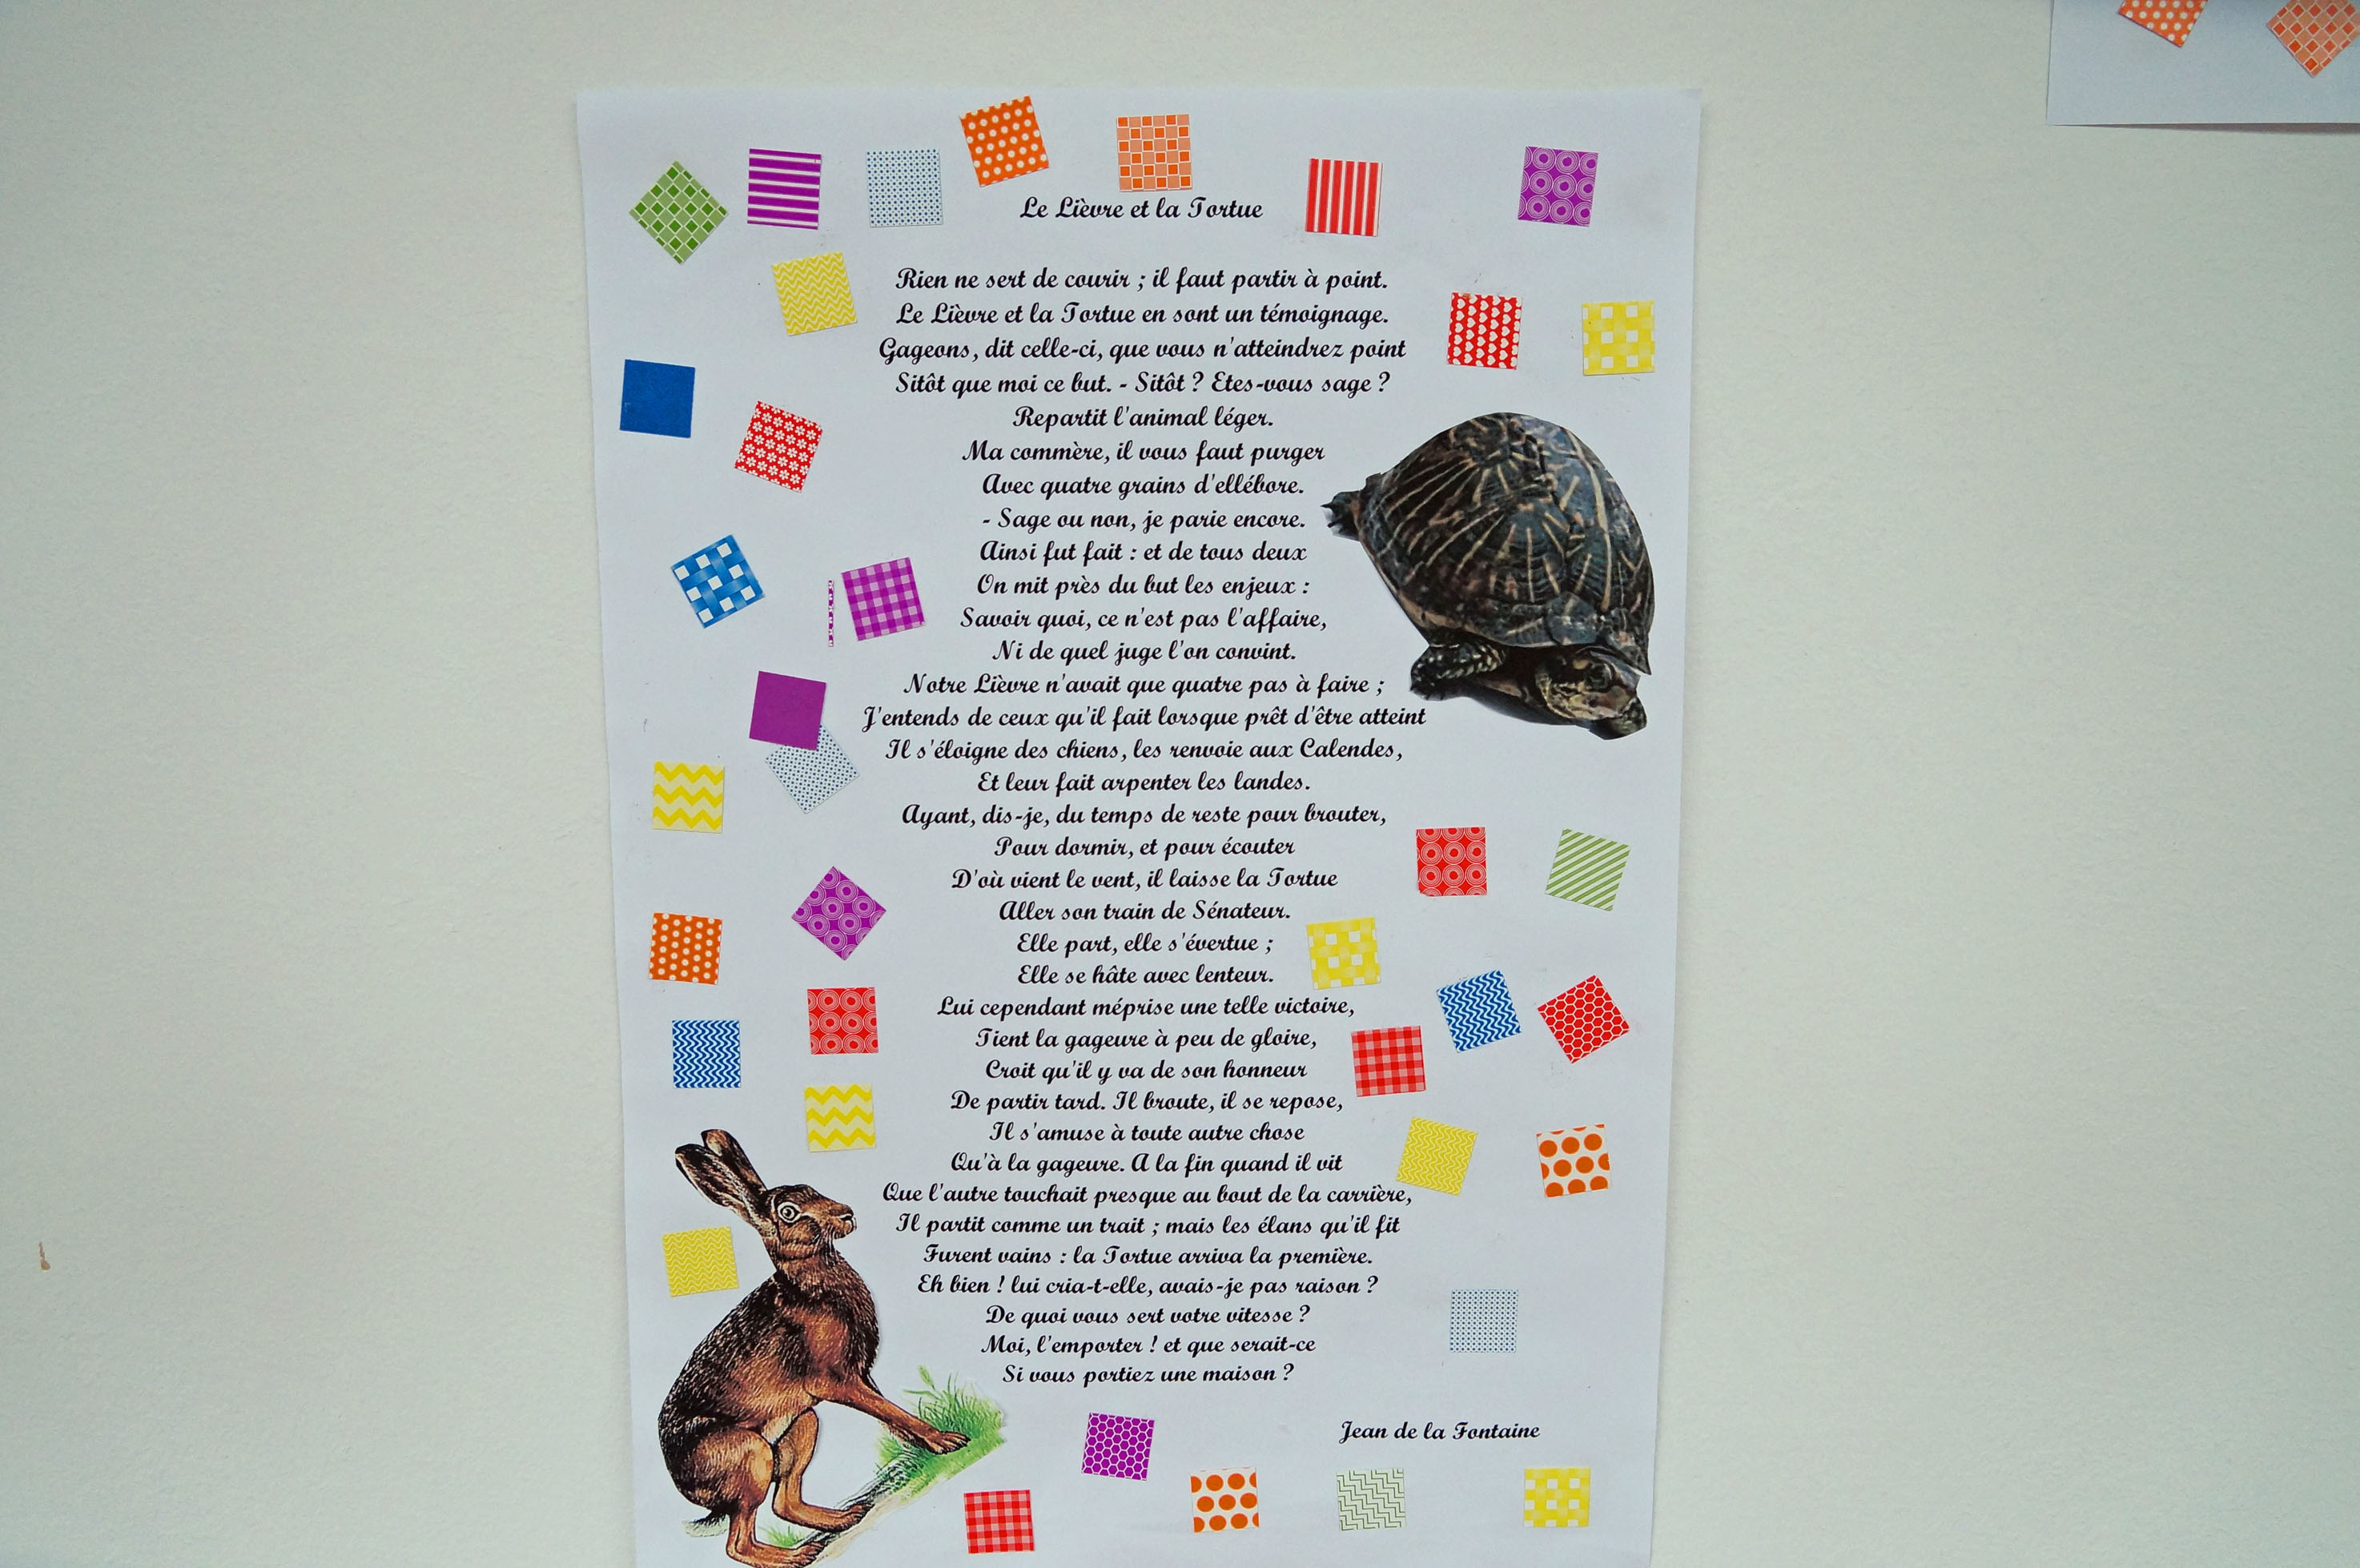 Le Lièvre et la Tortue
Rien ne sert de courir ; il faut partir à point.
Le Lièvre et la Tortue en sont un témoignage.
Gageons, dit celle-ci, que vous n'atteindrez point
Sitôt que moi ce but. - Sitôt ? Etes-vous sage ?
Repartit l'animal léger.
Ma commère, il vous faut purger
Avec quatre grains d'ellébore.
- Sage ou non, je parie encore.
Ainsi fut fait : et de tous deux
On mit près du but les enjeux :
Savoir quoi, ce n'est pas l'affaire,
Ni de quel juge l'on convint.
Notre Lièvre n'avait que quatre pas à faire ;
J'entends de ceux qu'il fait lorsque prêt d'être atteint
Il s'éloigne des chiens, les renvoie aux Calendes,
Et leur fait arpenter les landes.
Ayant, dis-je, du temps de reste pour brouter,
Pour dormir, et pour écouter
D'où vient le vent, il laisse la Tortue
Aller son train de Sénateur.
Elle part, elle s'évertue ;
Elle se hâte avec lenteur.
Lui cependant méprise une telle victoire,
Tient la gageure à peu de gloire,
Croit qu'il y va de son honneur
De partir tard. Il broute, il se repose,
Il s'amuse à toute autre chose
Qu'à la gageure. A la fin quand il vit
Que l'autre touchait presque au bout de la carrière,
Il partit comme un trait ; mais les élans qu'il fit
Furent vains : la Tortue arriva la première.
Eh bien ! lui cria-t-elle, avais-je pas raison ?
De quoi vous sert votre vitesse ?
Moi, l'emporter ! et que serait-ce
Si vous portiez une maison ?
Jean de la Fontaine